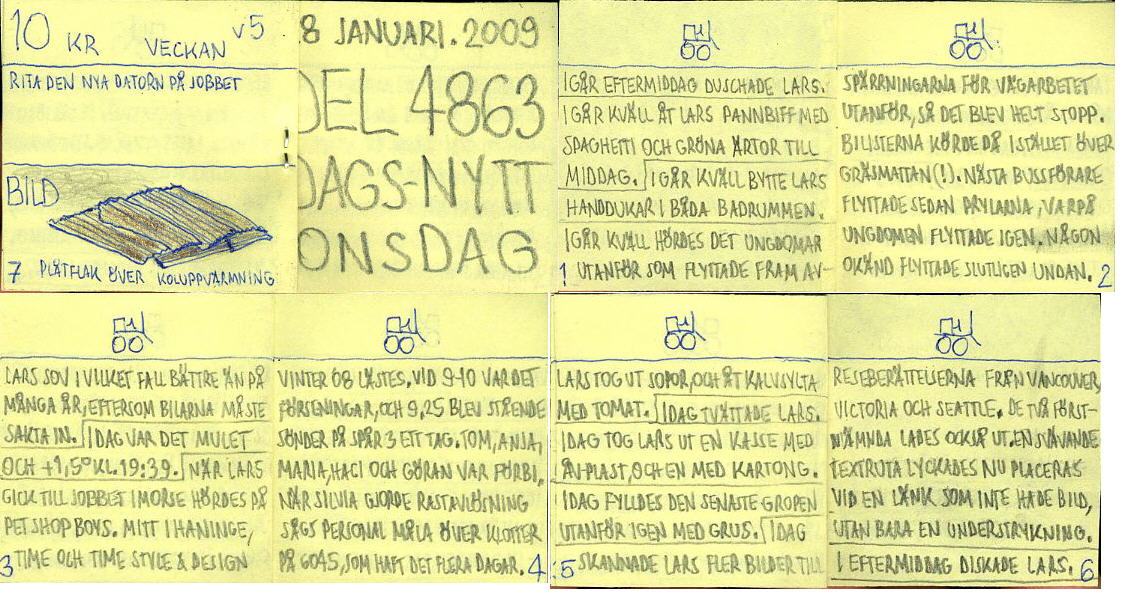 10 KR VECKAN V5
RITA DEN NYA DATORN PÅ JOBBET
BILD
7 PLÅTFLAK ÖVER KOLUPPVÄRMNING
8 JANUARI. 2009
DEL 4863
DAGS-NYTT
ONSDAG
IGÅR EFTERMIDDAG DUSCHADE LARS.
IGÅR KVÄLL ÅT LARS PANNBIFF MED
SPAGHETTI OCH GRÖNA ÄRTOR TILL
MIDDAG. IGÅR KVÄLL BYTTE LARS
HANDDUKAR I BÅDA BADRUMMEN.
IGÅR KVÄLL HÖRDES DET UNGDOMAR
1 UTANFÖR SOM FLYTTADE FRAM AV-
SPÄRRNINGARNA FÖR VÄGARBETET
UTANFÖR, SÅ DET BLEV HELT STOPP.
BILISTERNA KÖRDE DÅ ISTÄLLET ÖVER
GRÄSMATTAN(!). NÄSTA BUSSFÖRARE
FLYTTADE SEDAN PRYLARNA, VARPÅ
UNGDOMEN FLYTTADE IGEN. NÅGON
OKÄND FLYTTADE SLUTLIGEN UNDAN. 2
LARS SOV I VILKET FALL BÄTTRE ÄN PÅ
MÅNGA ÅR, EFTERSOM BILARNA MÅSTE
SAKTA IN. IDAG VAR DET MULET
OCH +1,5° KL. 19:39. NÄR LARS
GICK TILL JOBBET IMORSE HÖRDES PÅ
PET SHOP BOYS. MITT I HANINGE,
3 TIME OCH TIME STYLE & DESIGN
VINTER 08 LÄSTES, VID 9-10 VAR DET
FÖRSENINGAR, OCH 9,25 BLEV STÅENDE
SÖNDER PÅ SPÅR 3 ETT TAG. TOM, ANJA,
MARIA, HACI OCH GÖRAN VAR FÖRBI.
NÄR SILVIA GJORDE RASTAVLÖSNING
SÅGS PERSONAL MÅLA ÖVER KLOTTER
PÅ 6045, SOM HAFT DET FLERA DAGAR. 4
LARS TOG UT SOPOR, OCH ÅT KALVSYLTA
MED TOMAT. IDAG TVÄTTADE LARS.
IDAG TOG LARS UT EN KASSE MED
ÅV-PLAST, OCH EN MED KARTONG.
IDAG FYLLDES DEN SENASTE GROPEN
UTANFÖR IGEN MED GRUS. IDAG
5 SKANNADE LARS FLER BILDER TILL
RESEBERÄTTELSERNA FRÅN VANCOUVER,
VICTORIA OCH SEATTLE. DE TVÅ FÖRST-
NÄMNDA LADES OCKSÅ UT. EN SVÄVANDE
TEXTRUTA LYCKADES NU PLACERAS
VID EN LÄNK SOM INTE HADE BILD,
UTAN BARA EN UNDERSTRYKNING.
I EFTERMIDDAG DISKADE LARS. 6